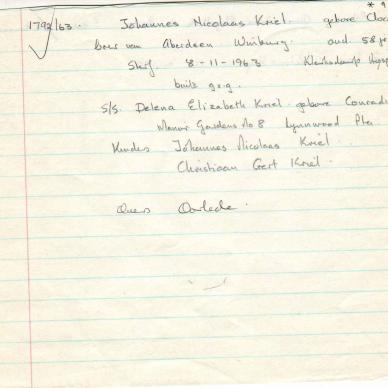 * 9
1792/63. Johannes Nicolaas Kriel. gebore
Boer van Aberdeen Winburg. oud 58 jr
Sterf. 8-11-1963 Klerksdorp Hosp
buite g.v.g.
s/s. Delena Elizabeth Kriel gebore Conradi
Manor Gardens No 8 Lynnwood Pta.
Kinders Johannes Nicolaas Kriel.
Christiaan Gert Kriel.
Ouers Oorlede.